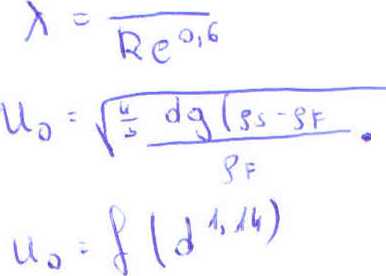 λ = ― / Re^0,6
u₀ = √(4/3 dg(ρs-ρF / ρF ·
u₀ = f(d^1,14)